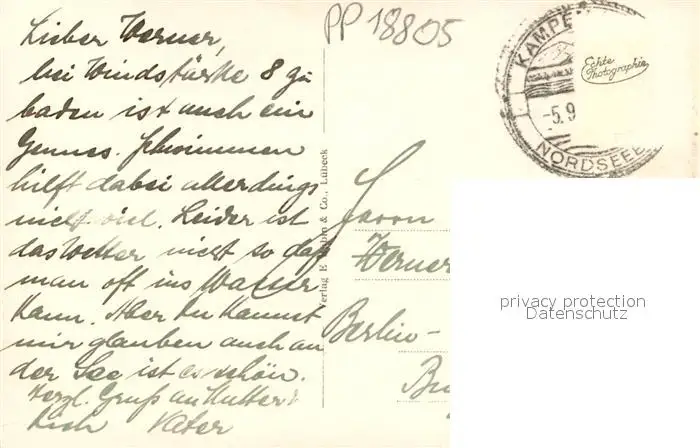 Lieber Werner,
bei Windstärke 8 zu
baden ist auch ein
Genuss. Schwimmen
hilft dabei allerdings
nicht viel. Leider ist
das Wetter nicht so daß
man oft ins Wasser
kann. Aber du kannst
mir glauben auch an
der See ist es schön.
Herzl. Gruß an Mutter &
Dich Vater
PP 18805
KAMPE
-5.9
NORDSEEB
Echte
Photographie
Verlag E & Co., Lübeck
Herrn
Werner
Berlin-
privacy protection
Datenschutz